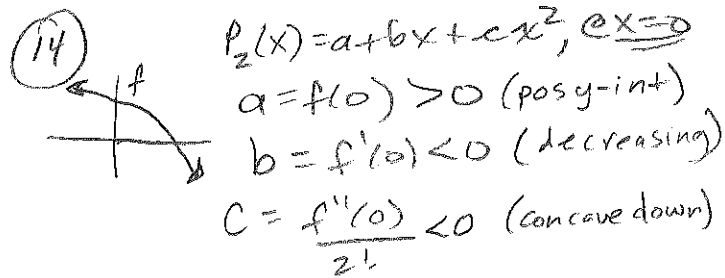 14
P₂(x) = a + bx + cx², @ x = 0
f
a = f(0) > 0 (pos y-int)
b = f'(0) < 0 (decreasing)
c = f''(0)/2! < 0 (concave down)